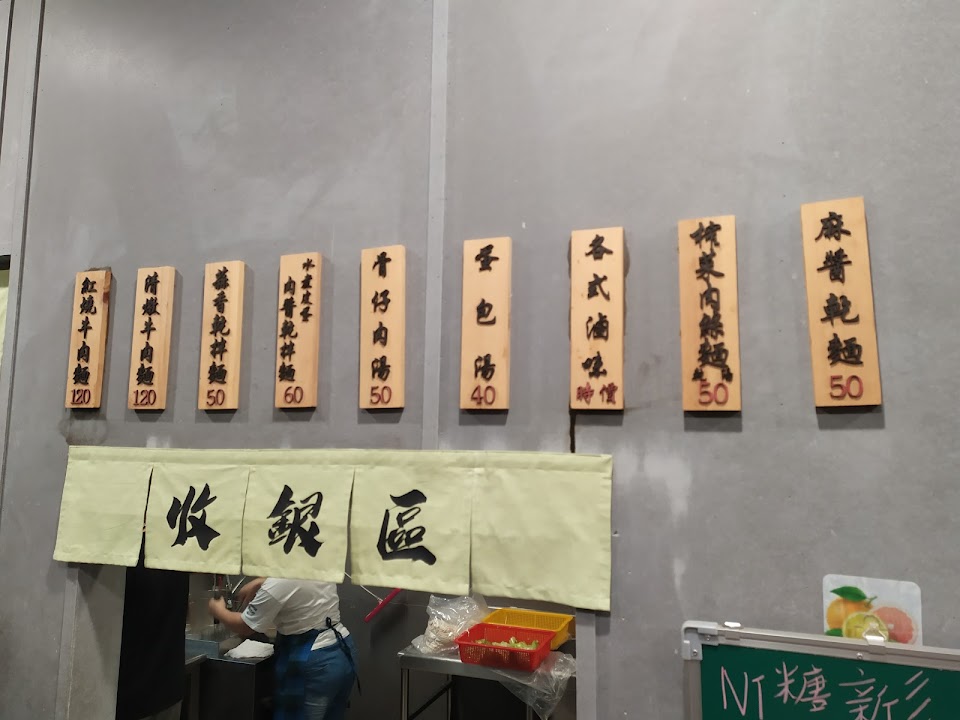 麻醬乾麵
50
榨菜肉絲麵
50
各式滷味
時價
蛋包湯
40
骨仔肉湯
50
水煮皮蛋
肉醬乾拌麵
60
蒜香乾拌麵
50
清燉牛肉麵
120
紅燒牛肉麵
120
收銀區
糖新